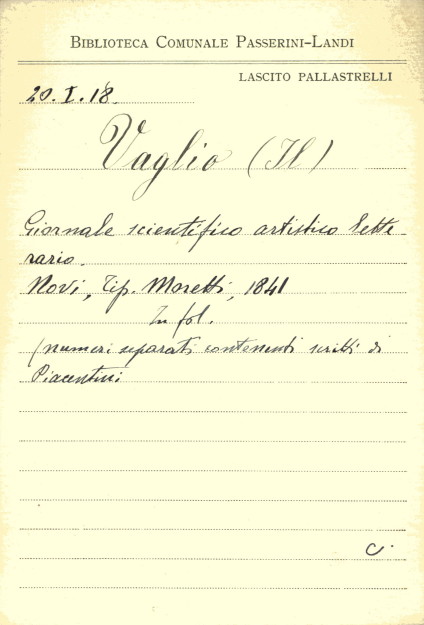 BIBLIOTECA COMUNALE PASSERINI-LANDI
LASCITO PALLASTRELLI
20.I.18.
Vaglio (Il)
Giornale scientifico artistico lette-
rario.
Novi, Tip. Moretti, 1841
In fol.
(numeri separati contenenti scritti di
Piacentini
C.